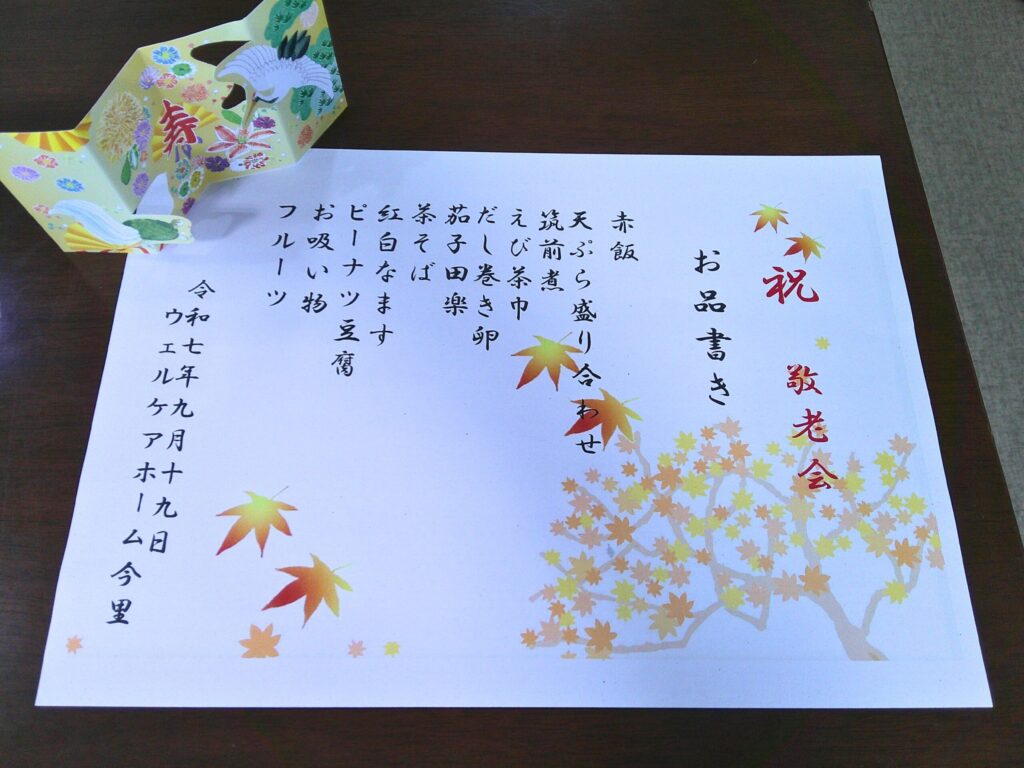 祝 敬老会
お品書き
赤飯
天ぷら盛り合わせ
筑前煮
えび茶巾
だし巻き卵
茄子田楽
茶そば
紅白なます
ピーナツ豆腐
お吸い物
フルーツ
令和七年九月十九日
ウェルケアホーム今里
寿